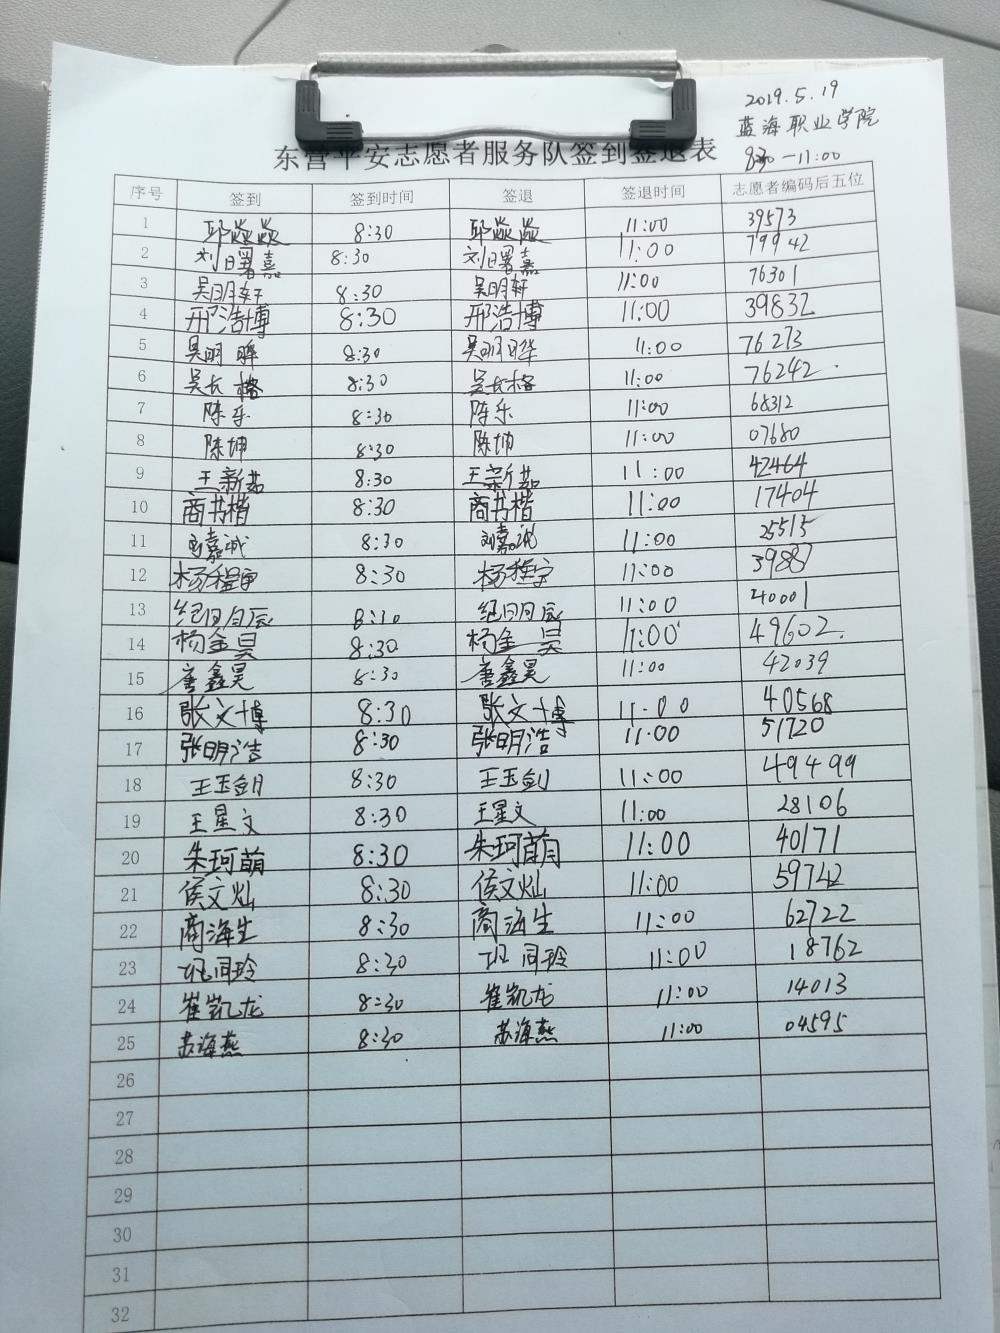 2019.5.19
蓝海职业学院
8:30-11:00
东营平安志愿者服务队签到签退表
序号 签到 签到时间 签退 签退时间 志愿者编码后五位
1 邱焱焱 8:30 邱焱焱 11:00 39573
2 刘曙嘉 8:30 刘曙嘉 11:00 79942
3 吴明轩 8:30 吴明轩 11:00 76301
4 邢浩博 8:30 邢浩博 11:00 39832
5 吴明晔 8:30 吴明晔 11:00 76273
6 吴长格 8:30 吴长格 11:00 76242
7 陈乐 8:30 陈乐 11:00 68312
8 陈坤 8:30 陈坤 11:00 07680
9 王新茹 8:30 王新茹 11:00 42464
10 商书楷 8:30 商书楷 11:00 17404
11 刘嘉诚 8:30 刘嘉诚 11:00 25515
12 杨程宇 8:30 杨程宇 11:00 3988
13 8:30 纪明辰 11:00 20001
14 杨金昊 8:30 杨金昊 11:00 49602
15 唐鑫昊 8:30 唐鑫昊 11:00 42039
16 张文博 8:30 张文博 11:00 40568
17 张明浩 8:30 张明浩 11:00 51720
18 王玉剑 8:30 王玉剑 11:00 49499
19 王星文 8:30 王星文 11:00 28106
20 朱珂萌 8:30 朱珂萌 11:00 40171
21 侯文灿 8:30 侯文灿 11:00 59742
22 商海生 8:30 商海生 11:00 62722
23 班同玲 8:30 班同玲 11:00 18762
24 崔凯龙 8:30 崔凯龙 11:00 14013
25 苏海燕 8:30 苏海燕 11:00 04595
26
27
28
29
30
31
32